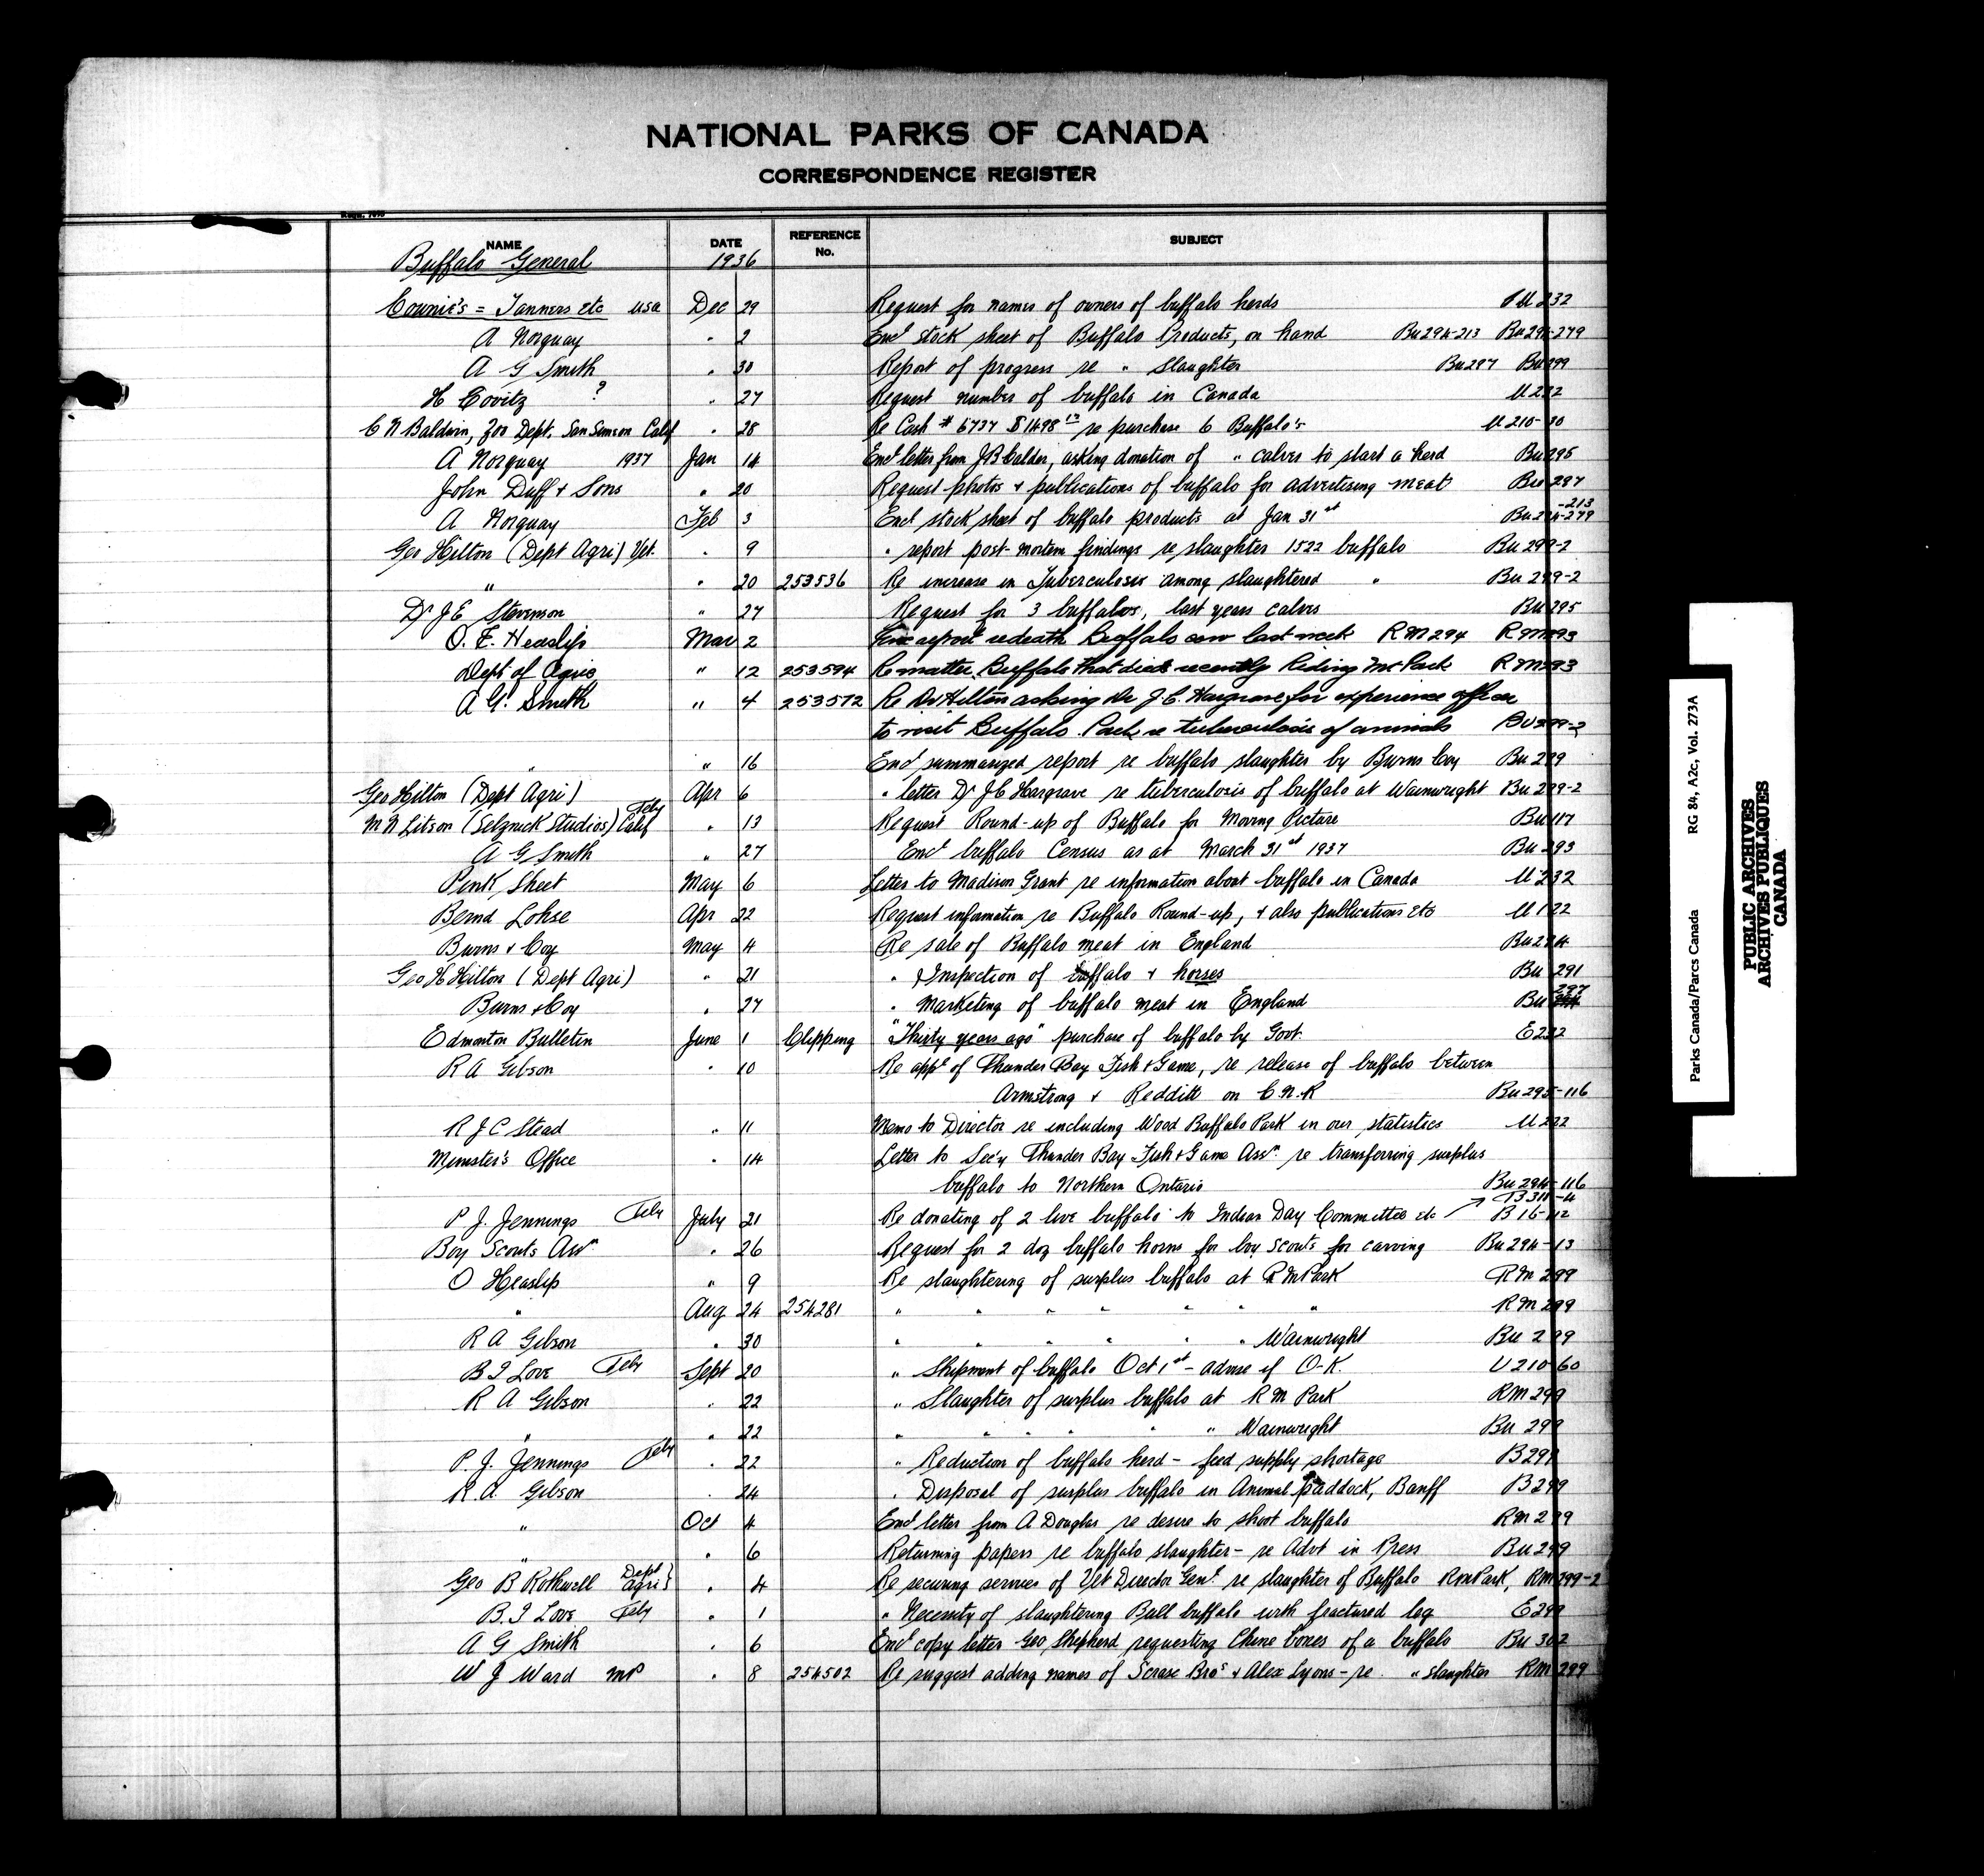 NATIONAL PARKS OF CANADA
CORRESPONDENCE REGISTER
NAME DATE REFERENCE No. SUBJECT
Buffalo General 1936
Cownie's = Tanners etc USA Dec 29 Request for names of owners of buffalo herds U 232
A Norquay " 2 Encl stock sheet of Buffalo Products, on hand Bu294-213 Bu294-279
A G Smith " 30 Report of progress re " Slaughter Bu297 Bu299
H Covitz ? " 27 Request number of buffalo in Canada U 232
C N Baldwin, Zoo Dept. San Simeon Calif " 28 Re Cash # 6737 $1498 re purchase 6 Buffalo's U 210-
A Norquay 1937 Jan 14 Encl letter from J B Calder, asking donation of " calves to start a herd Bu295
John Duff & Sons " 20 Request photos & publications of buffalo for advertising meat Bu 297
A Norquay Feb 3 Encl stock sheet of buffalo products at Jan 31st Bu294-279 -213
Geo Hilton (Dept Agri) Vet. " 9 " report post-mortem findings re slaughter 1522 buffalo Bu 299-2
" " 20 253536 Re increase in Tuberculosis among slaughtered " Bu 299-2
Dr J E Stevenson " 27 Request for 3 buffalos, last years calves Bu295
O. E. Heaslip Mar 2 Give report re death Buffalo cow last week RM294 RM293
Dept of Agric " 12 253594 Re matter Buffalo that died recently Riding Mt Park RM293
A G. Smith " 4 253572 Re Dr Hilton asking Dr J. C. Hargrave for experience officer
to visit Buffalo Park re tuberculosis of animals BU299-2
" " 16 Encl summarized report re buffalo slaughter by Burns Coy Bu 299
Geo Hilton (Dept Agri) Apr 6 " letter Dr J C Hargrave re tuberculosis of buffalo at Wainwright Bu 299-2
M N Litson (Selznick Studios) Calif Tely " 13 Request Round-up of Buffalo for Moving Picture Bu 117
A G Smith " 27 Encl buffalo Census as at March 31st 1937 Bu 293
Pink Sheet May 6 Letter to Madison Grant re information about buffalo in Canada U 232
Bernd Lohse Apr 22 Request information re Buffalo Round-up, & also publications etc U 122
Burns & Coy May 4 Re sale of Buffalo meat in England Bu294
Geo H Hilton (Dept Agri) " 21 " Inspection of buffalo & horses Bu 291
Burns & Coy " 27 " Marketing of buffalo meat in England Bu 297
Edmonton Bulletin June 1 Clipping "Thirty years ago" purchase of buffalo by Govt. E232
R A Gibson " 10 Re appl of Thunder Bay Fish & Game, re release of buffalo between
Armstrong & Redditt on C.N.R Bu 295-116
R J C Stead " 11 Memo to Director re including Wood Buffalo Park in our statistics U 232
Minister's Office " 14 Letter to Sec'y Thunder Bay Fish & Game Assn. re transferring surplus
buffalo to Northern Ontario Bu 294-116
P J. Jennings Tely July 21 Re donating of 2 live buffalo to Indian Day Committee etc B 16-112 B311-4
Boy Scouts Assn " 26 Request for 2 doz buffalo horns for boy scouts for carving Bu 294-13
O Heaslip " 9 Re slaughtering of surplus buffalo at R M Park RM 299
" Aug 24 254281 " " " " " " " RM 299
R A Gibson " 30 " " " " " " Wainwright Bu 299
B I Love Tely Sept 20 " Shipment of buffalo Oct 1st - advise if O-K. U 210-60
R A Gibson " 22 " Slaughter of surplus buffalo at R M Park RM 299
" " 22 " " " " " " Wainwright Bu 299
P. J. Jennings Tely " 22 " Reduction of buffalo herd - feed supply shortage B299
R. A. Gibson " 24 " Disposal of surplus buffalo in Animal paddock, Banff B299
" Oct 4 Encl letter from A Douglas re desire to shoot buffalo RM 299
" " 6 Returning papers re buffalo slaughter - re Advt in Press Bu 299
Geo B Rothwell Dept Agri " 4 Re securing services of Vet Director Genl. re slaughter of Buffalo RM Park, RM299-2
B. I Love Tely " 1 " Necessity of slaughtering Bull buffalo with fractured leg E299
A G Smith " 6 Encl copy letter Geo Shepherd requesting Chine bones of a buffalo Bu 302
W J Ward MP " 8 254502 Re suggest adding names of Scrase Bros & Alex Lyons - re " slaughter RM 299
Parks Canada/Parcs Canada RG 84, A2c, Vol. 273A
PUBLIC ARCHIVES
ARCHIVES PUBLIQUES
CANADA